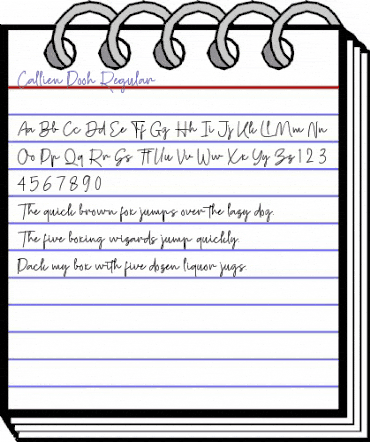 Callien Dooh Regular
Aa Bb Cc Dd Ee Ff Gg Hh Ii Jj Kk Ll Mm Nn
Oo Pp Qq Rr Ss Tt Uu Vv Ww Xx Yy Zz 1 2 3
4 5 6 7 8 9 0
The quick brown fox jumps over the lazy dog.
The five boxing wizards jump quickly.
Pack my box with five dozen liquor jugs.